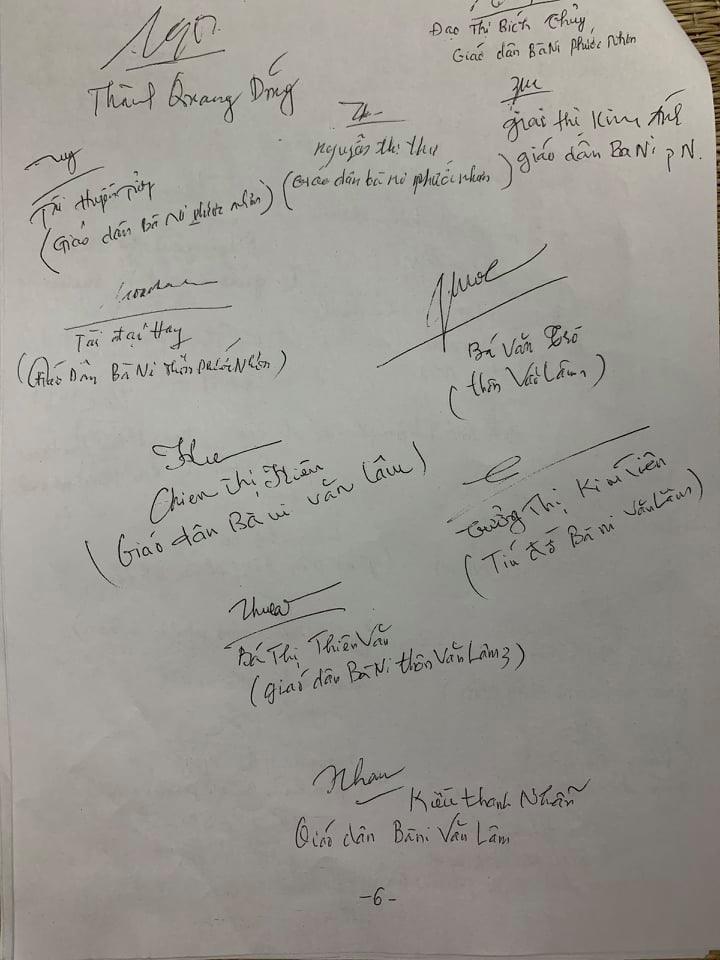 Đạo Thị Bích Thủy
Giáo dân BàNi Phước Nhơn
Thành Quang Dóng
Nguyễn thị thu
(Giáo dân bà ni phước nhơn)
thị Kim Ánh
giáo dân BaNi PN.
Tài
(Giáo dân Bà Ni phước nhơn)
Tài đại Hay
(Giáo Dân Bà Ni thôn Phước Nhơn)
Bá Văn
(thôn Văn Lâm 1)
Chien thị
(Giáo dân Bà ni văn Lâm)
Thị Kim Tiên
(Tín đồ Bà ni Văn Lâm)
Bá Thị Thiên Văn
(giáo dân BàNi thôn Văn Lâm 3)
Nhan
Kiều thanh Nhãn
Giáo dân Bàni Văn Lâm
-6-